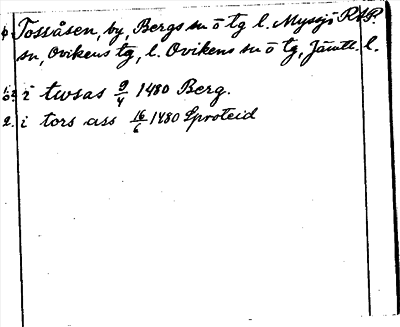 Tossåsen, by, Bergs sn o tg l. Myssjö RÄP.
sn, Ovikens tg, l. Ovikens sn o tg, Jämtl. l.
i twsas 9/4 1480 Berg.
2. i tors ass 16/6 1480 Sproteid